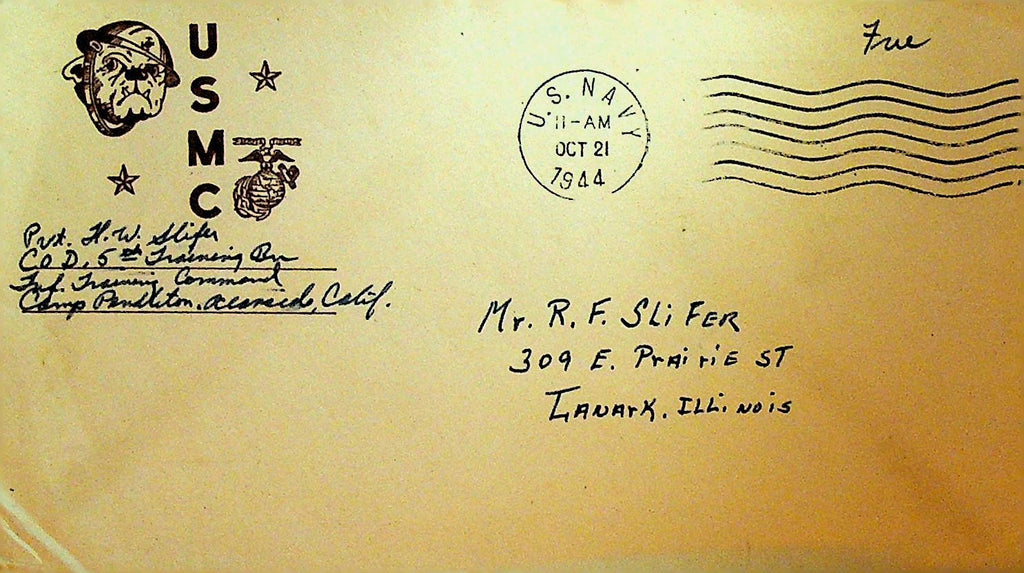 USMC
Free
U.S. NAVY
11-AM
OCT 21
1944
Pvt. H. W. Slifer
CO D, 5th Training Bn
Inf. Training Command
Camp Pendleton, Oceanside, Calif.
Mr. R. F. SLiFER
309 E. PrAiriE ST
LANArK, ILLiNois